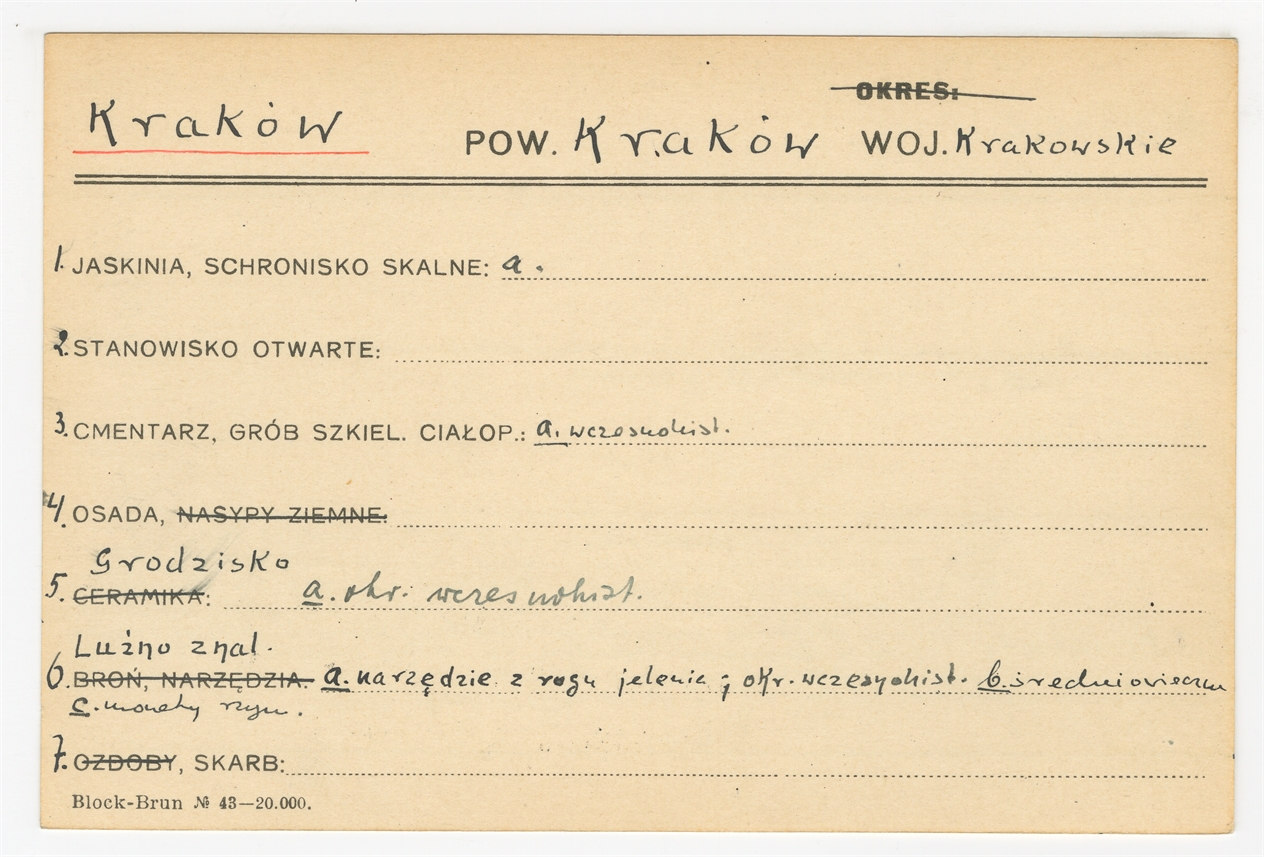 OKRES:
Kraków POW. Kraków WOJ. Krakowskie
1. JASKINIA, SCHRONISKO SKALNE: a.
2. STANOWISKO OTWARTE:
3. CMENTARZ, GRÓB SZKIEL. CIAŁOP.: a. wczesnohist.
4. OSADA, NASYPY ZIEMNE:
Grodzisko
5. CERAMIKA: a. okr. wczesnohist.
Luźno znal.
6. BROŃ, NARZĘDZIA: a. narzędzie z rogu jelenia; okr. wczesnohist. b. średniowieczne
c. monety rzym.
7. OZDOBY, SKARB:
Block-Brun № 43—20.000.